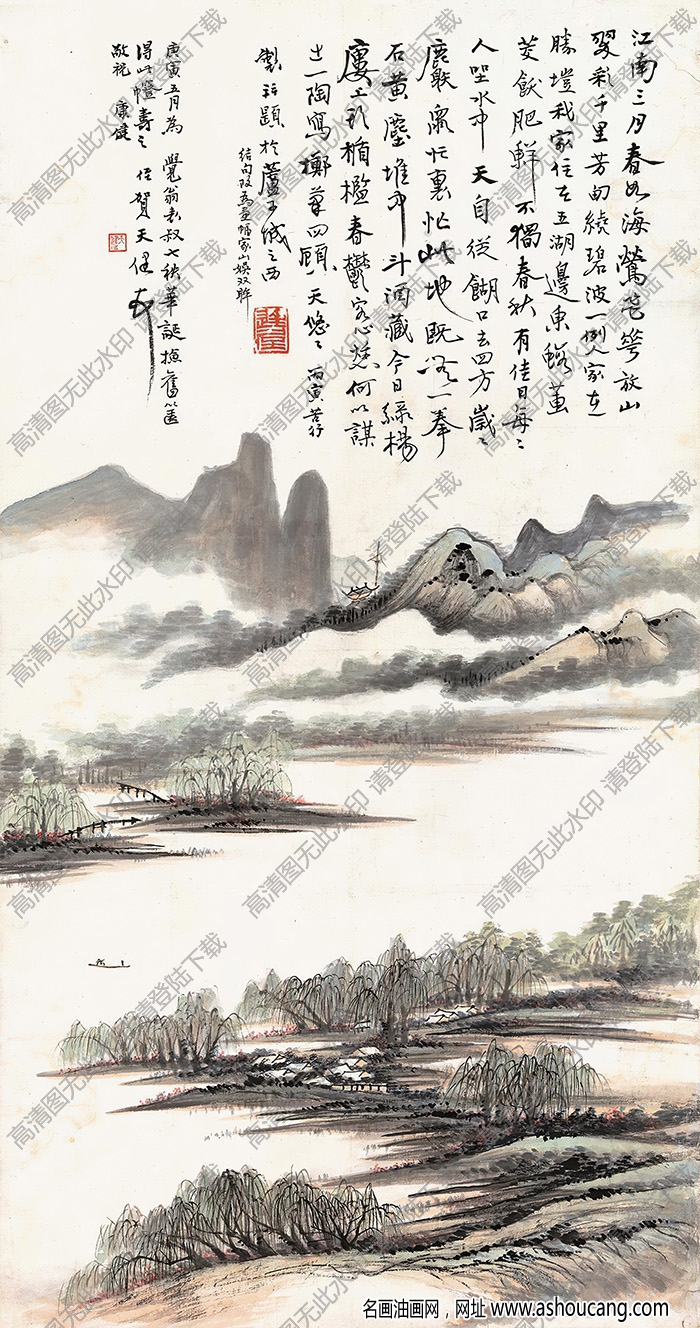 江南三月春如海鶯花弄放山
翠彩千里芳田繞碧波一例人家在
勝塏我家住在五湖邊東
芡飲肥鮮不獨春秋有佳日每々
人坐水中天自從餬口去四方歲々
忙裏忙此地既
石黃塵堆中斗酒藏今日綠楊
春鬱客心愁何以謀
一陶寫擲筆四顧天悠々丙寅
製並題於蘆子城之西
結句改為畫幅家山娛双眸
庚寅五月為覺翁老叔七秩華誕檢舊篋
得此幀壽之侄賀天健
敬祝康健
高清图无此水印 请登陆下载
名画油画网，网址 www.ashoucang.com